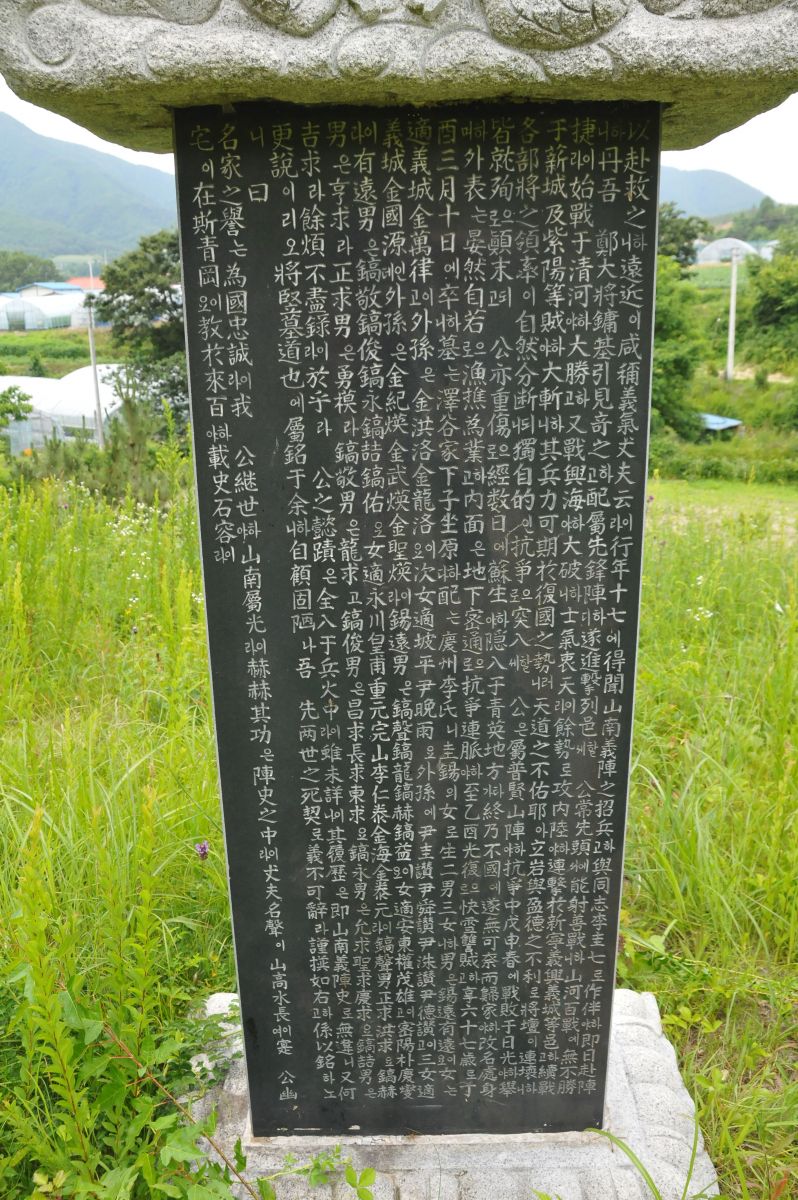 以赴救之하니遠近이咸稱義氣丈夫云이라行年十七에得聞山南義陣之招兵하고與同志李圭七로作伴하야即日赴陣
하니丹吾 鄭大將鏞基引見奇之하고配屬先鋒陣하다遂進擊列邑할세 公常先頭에能射善戰하니山河百戰에無不勝
捷이라始戰于清河하야大勝하고又戰興海하야大破하니士氣衷天이라餘勢로攻內陸하야連擊於新寧義興義城等邑하고續戰
于薪城及紫陽等賊하야大斬하니其兵力可期於復國之勢러니天道之不佑耶아立岩與盈德之不利로將壇이連壞하니
各部將之領率이自然分斷되니獨自的인抗爭으로突入할세 公은屬普賢山陣하야抗爭中戊申春에戰敗于日光하야擧
皆就殉으로顚末되고 公亦重傷으로經数日에蘇生하야隱入于青英地方하다가終乃不國에遂無可奈而歸家하야改名處身
하며外表는晏然自若으로漁樵為業하고內面은地下密通으로抗爭連脈하야至乙酉光復으로快雪讐賊하고享六十七歲로于
酉三月十日에卒하니墓는澤谷家下子坐原하며配는慶州李氏니圭錫의女로生二男三女하니男은錫遠有遠이오女는
適義城金萬律이고外孫은金洪洛金龍洛이오次女適坡平尹晩雨요外孫에尹圭讚尹舜讚尹洙讚尹德讚이고三女適
義城金國源인데外孫은金紀煐金武煐金聖煐이라錫遠男은鎬聲鎬龍鎬赫鎬益이오女適安東權茂雄이고密陽朴慶燮
이라有遠男은鎬敬鎬俊鎬永鎬詰鎬佑요女適永川皇甫重元完山李仁泰金海金泰元이라鎬聲男正求洪求요鎬赫
男은亨求라正求男은勇模라鎬敬男은龍求고鎬俊男은昌求長求東求요鎬永男은允求聖求慶求요鎬詰男은
吉求라餘煩不盡錄이라於乎라 公之懿蹟은全入于兵火中이라雖未詳其履歷은即山南義陣史로無違니又何
更說이리오將竪墓道也에屬銘于余하니自顧固陋나吾 先两世之死契로義不可辭라謹撰如右하고係以銘하노
니曰
名家之譽는為國忠誠이라我 公継世하야山南屬光이라赫赫其功은陣史之中이라丈夫名聲이山高水長에이寔 公幽
宅이在斯青岡이오教於來百하야載史石容이라